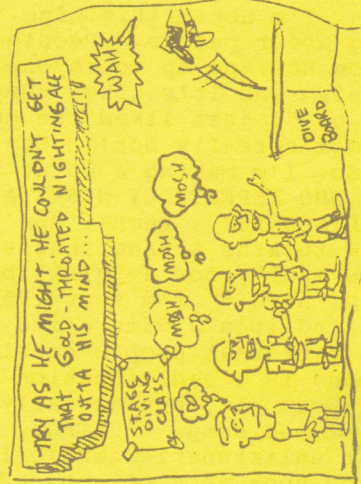 TRY AS HE MIGHT, HE COULDN'T GET
THAT GOLD-THROATED NIGHTINGALE
OUTTA HIS MIND...
WAH
STAGE
DIVING
CLASS
MOSH
MOSH
MOSH
DIVE
BOARD